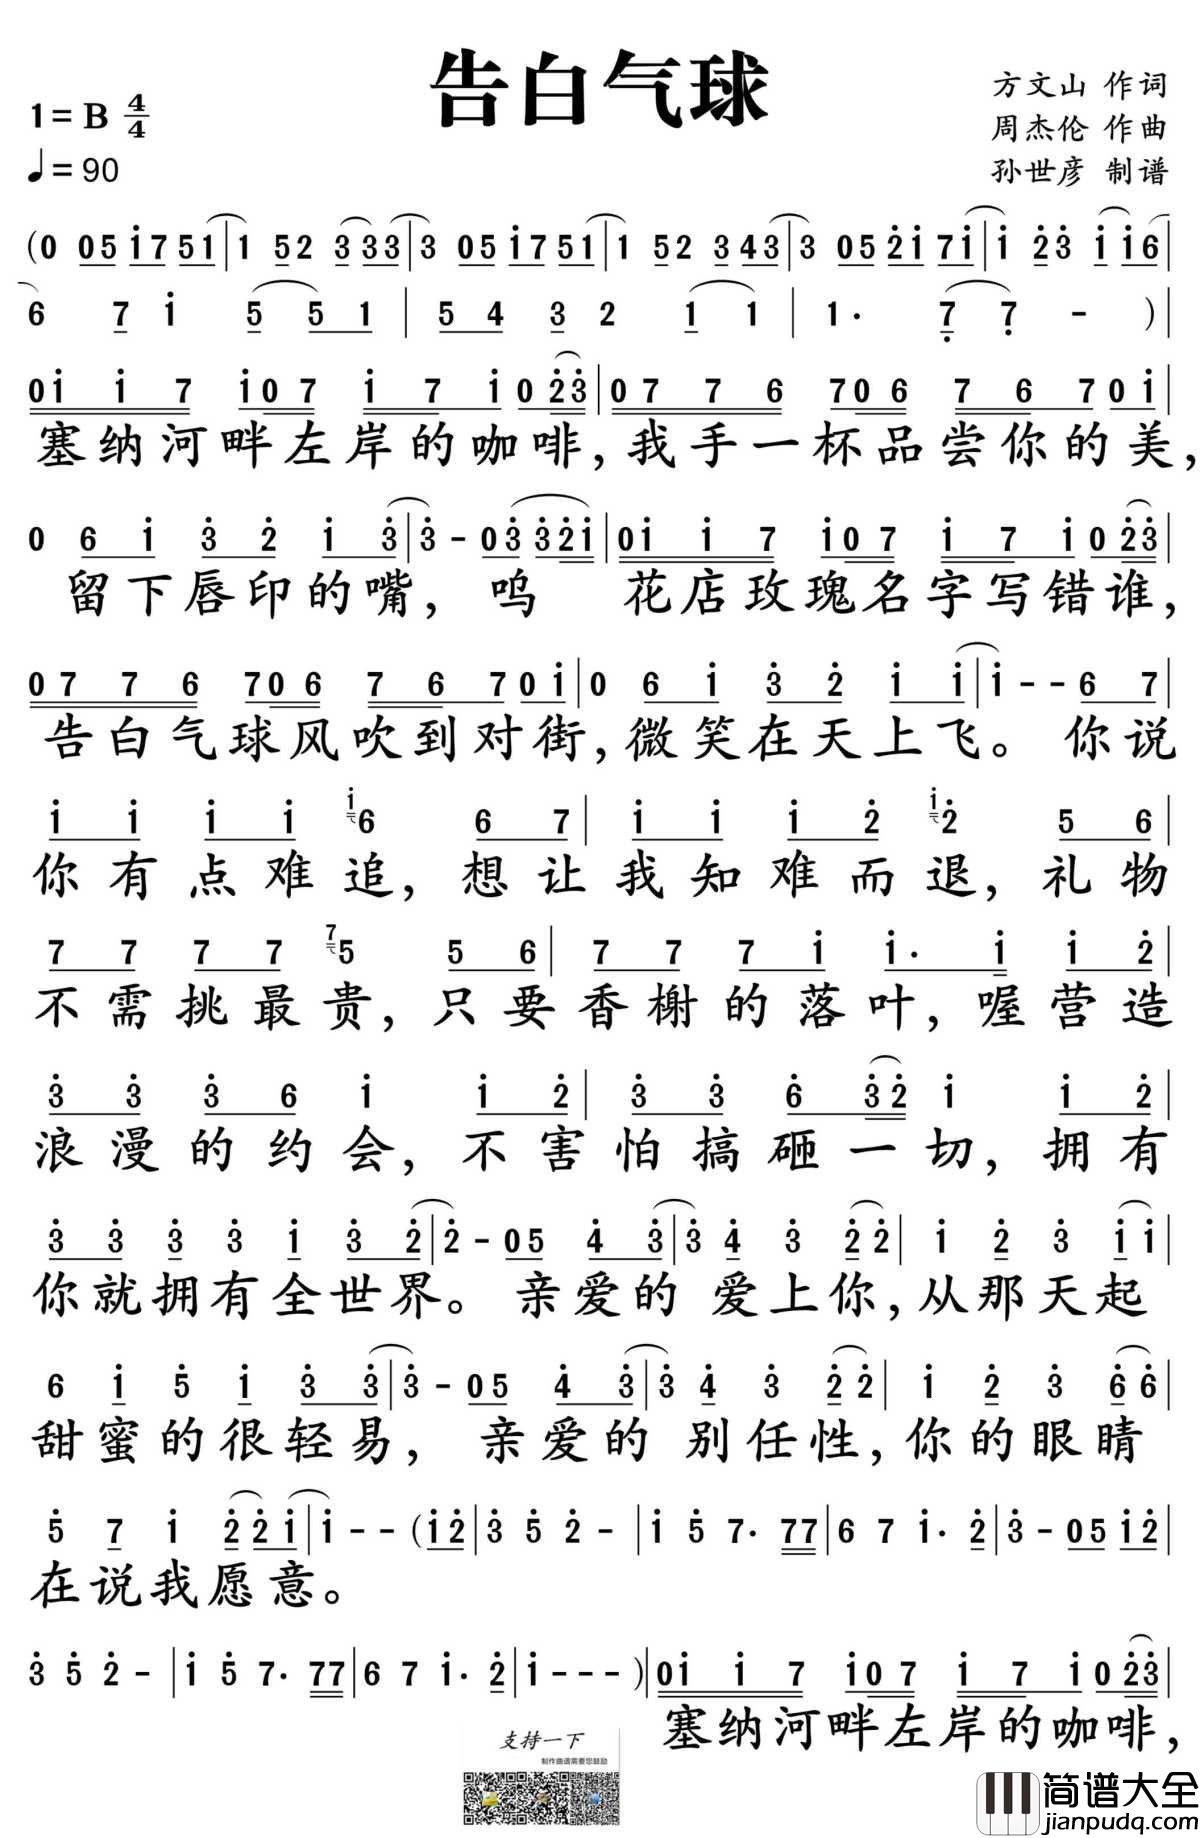 告白气球
1= B 4/4
♩= 90
方文山 作词
周杰伦 作曲
孙世彦 制谱
(0 05 i7 51 | 1 52 3 33 | 3 05 i7 51 | 1 52 3 43 | 3 05 2̇i 7i | i 2̇3̇ i i6 |
6 7 i 5 5 1 | 5 4 3 2 1 1 | 1· 7̣ 7̣ - ) |
0i i 7 i0 7 i 7 i 0 2̇3̇ | 07 7 6 70 6 7 6 7 0 i |
塞纳河畔左岸的咖啡,我手一杯品尝你的美,
0 6 i 3̇ 2̇ i 3̇ | 3̇ - 03̇ 3̇2̇i | 0i i 7 i0 7 i 7 i 0 2̇3̇ |
留下唇印的嘴, 呜 花店玫瑰名字写错谁,
07 7 6 70 6 7 6 7 0 i | 0 6 i 3̇ 2̇ i i | i - - 6 7 |
告白气球风吹到对街,微笑在天上飞。 你说
i i i i i6 6 7 | i i i 2̇ i2̇ 5 6 |
你有点难追, 想让我知难而退, 礼物
7 7 7 7 75 5 6 | 7 7 7 i i· i i 2̇ |
不需挑最贵, 只要香榭的落叶, 喔营造
3̇ 3̇ 3̇ 6 i i 2̇ | 3̇ 3̇ 6̇ 3̇2̇ i i 2̇ |
浪漫的约会, 不害怕搞砸一切, 拥有
3̇ 3̇ 3̇ 3̇ i 3̇ 2̇ | 2̇ - 05 4̇ 3̇ | 3̇ 4̇ 3̇ 2̇ 2̇ | i 2̇ 3̇ i i |
你就拥有全世界。 亲爱的 爱上你,从那天起
6 i 5̇ i 3̇ 3̇ | 3̇ - 05 4̇ 3̇ | 3̇ 4̇ 3̇ 2̇ 2̇ | i 2̇ 3̇ 6̇ 6̇ |
甜蜜的很轻易, 亲爱的 别任性,你的眼睛
5̇ 7 i 2̇ 2̇ i | i - - (i2̇ | 3̇ 5̇ 2̇ - | i 5̇ 7· 77 | 6 7 i· 2̇ | 3̇ - 05 i2̇ |
在说我愿意。
3̇ 5̇ 2̇ - | i 5̇ 7· 77 | 6 7 i· 2̇ | i - - - ) | 0i i 7 i0 7 i 7 i 0 2̇3̇ |
塞纳河畔左岸的咖啡,
支持一下
制作曲谱需要您鼓励
简谱大全
jianpudq.com